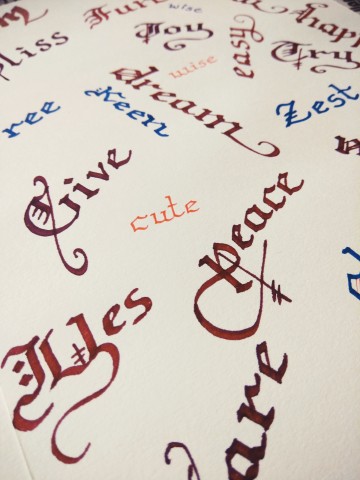 Fun
wise
happ
bliss
Joy
easy
Try
wise
dream
ree
Keen
Zest
Give
cute
Peace
Yes
are